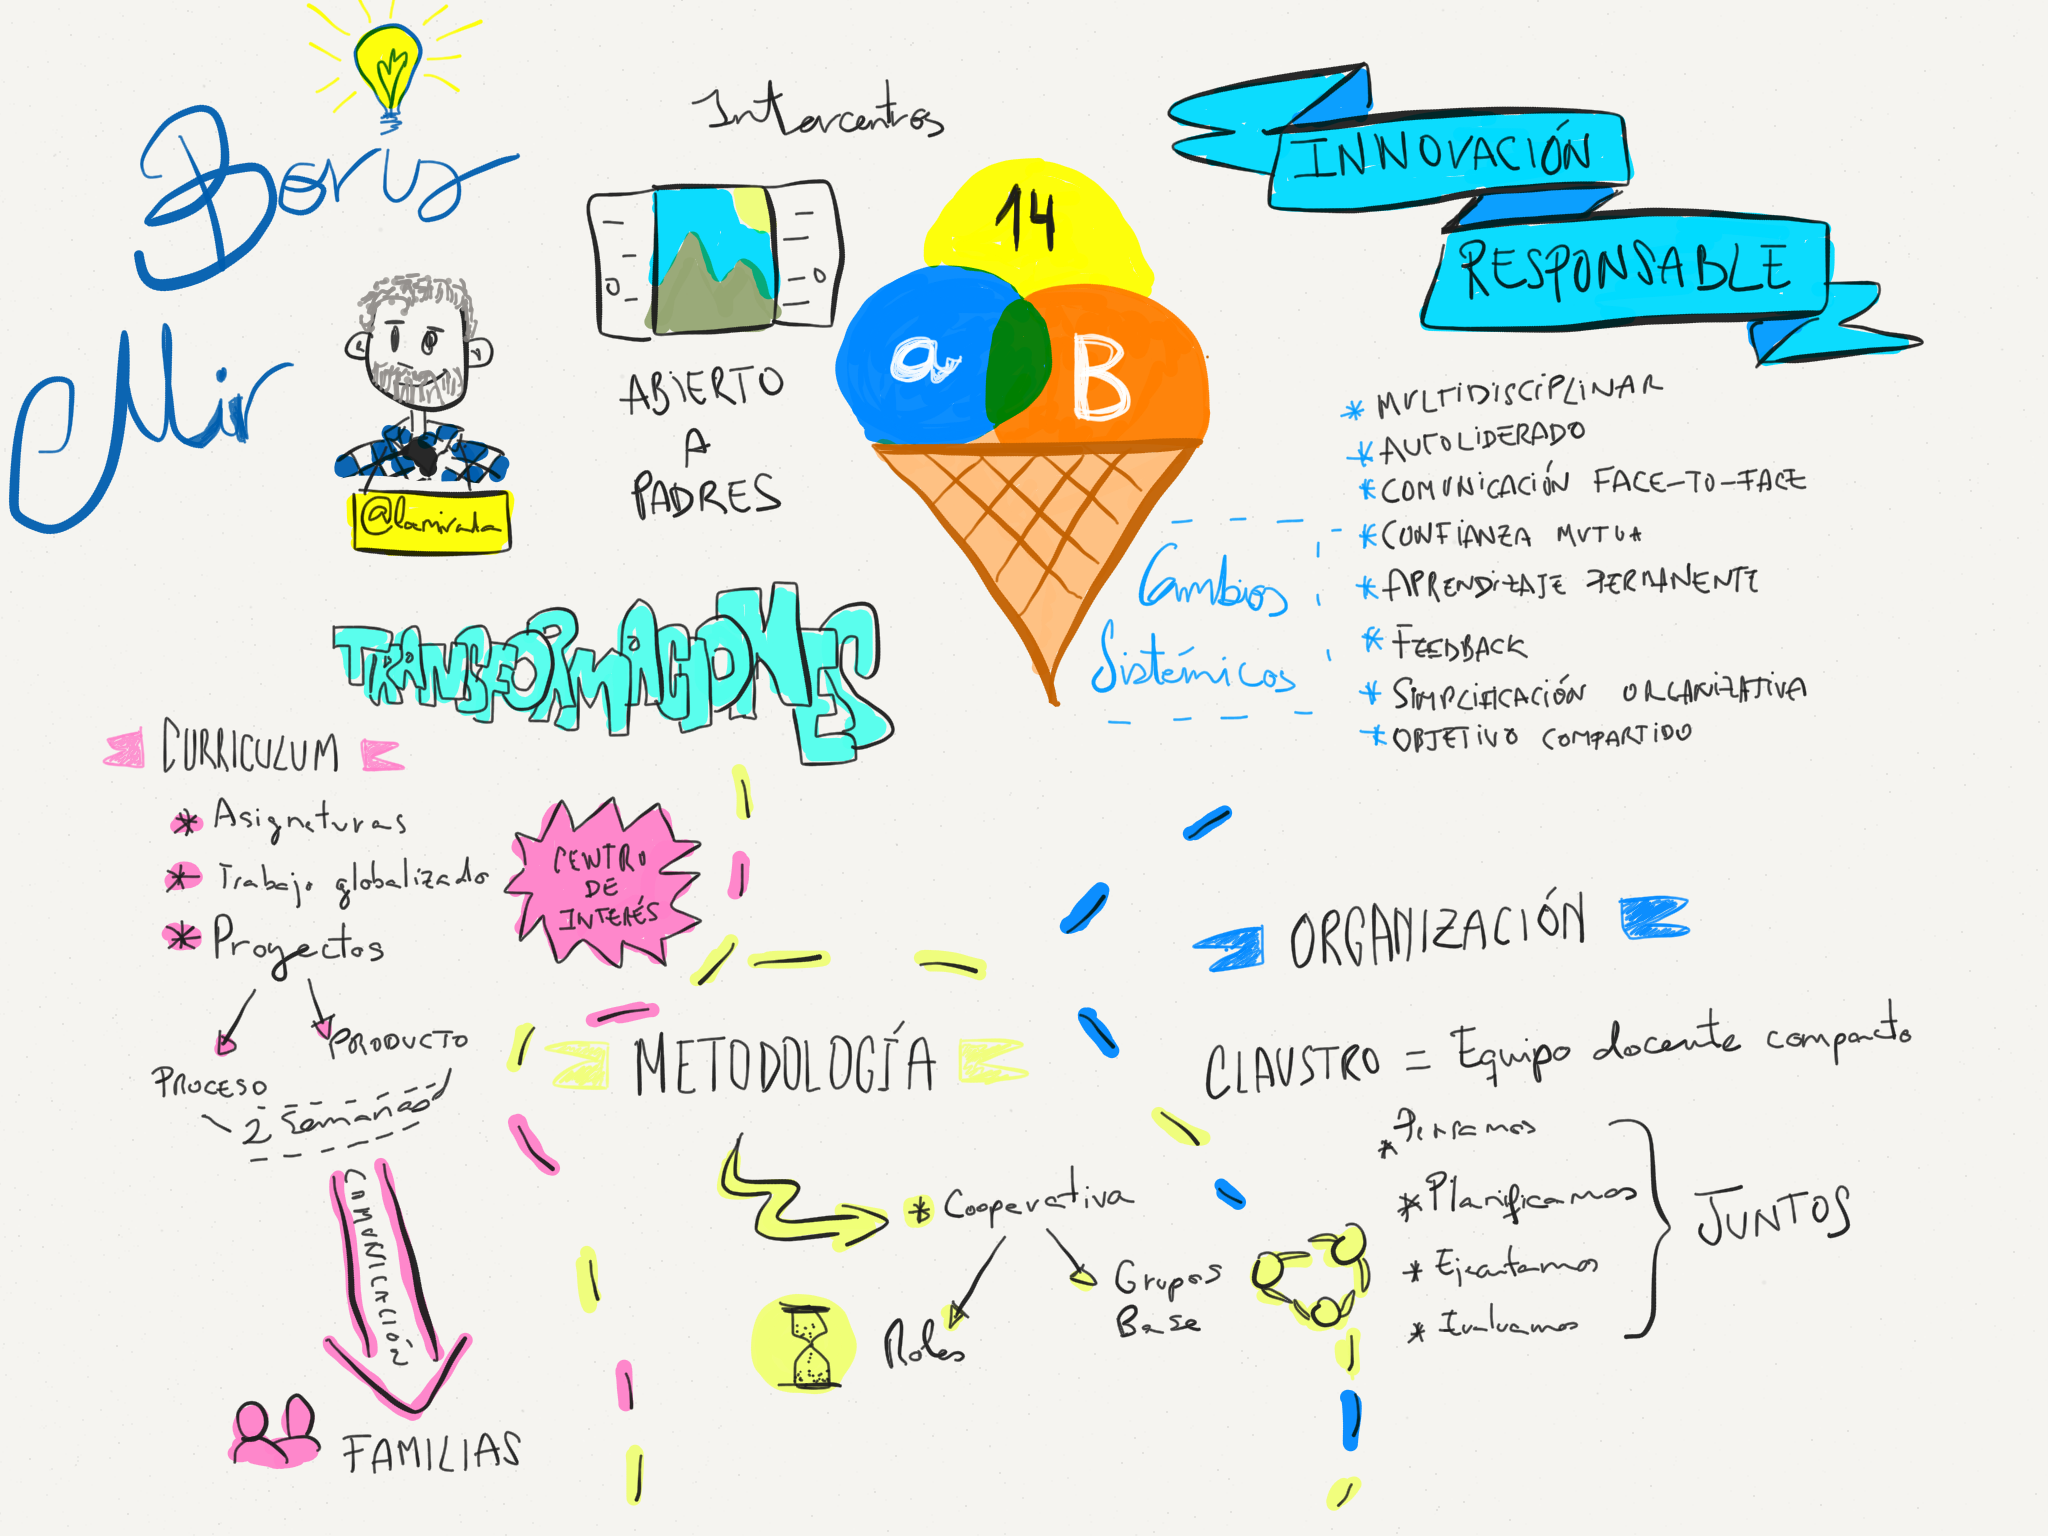 Boris
Mir
@lamirada
Intercentros
ABIERTO
A
PADRES
14
a
B
INNOVACIÓN
RESPONSABLE
* MULTIDISCIPLINAR
* AUTOLIDERADO
* COMUNICACIÓN FACE-TO-FACE
* CONFIANZA MUTUA
* APRENDIZAJE PERMANENTE
* FEEDBACK
* SIMPLIFICACIÓN ORGANIZATIVA
* OBJETIVO COMPARTIDO
Cambios
Sistémicos
TRANSFORMACIONES
CURRICULUM
* Asignaturas
* Trabajo globalizado
* Proyectos
PROCESO
PRODUCTO
2 Semanas
COMUNICACIÓN
FAMILIAS
CENTRO
DE
INTERÉS
METODOLOGÍA
* Cooperativa
Roles
Grupos
Base
ORGANIZACIÓN
CLAUSTRO = Equipo docente compacto
* Pensamos
* Planificamos
* Ejecutamos
* Evaluamos
JUNTOS